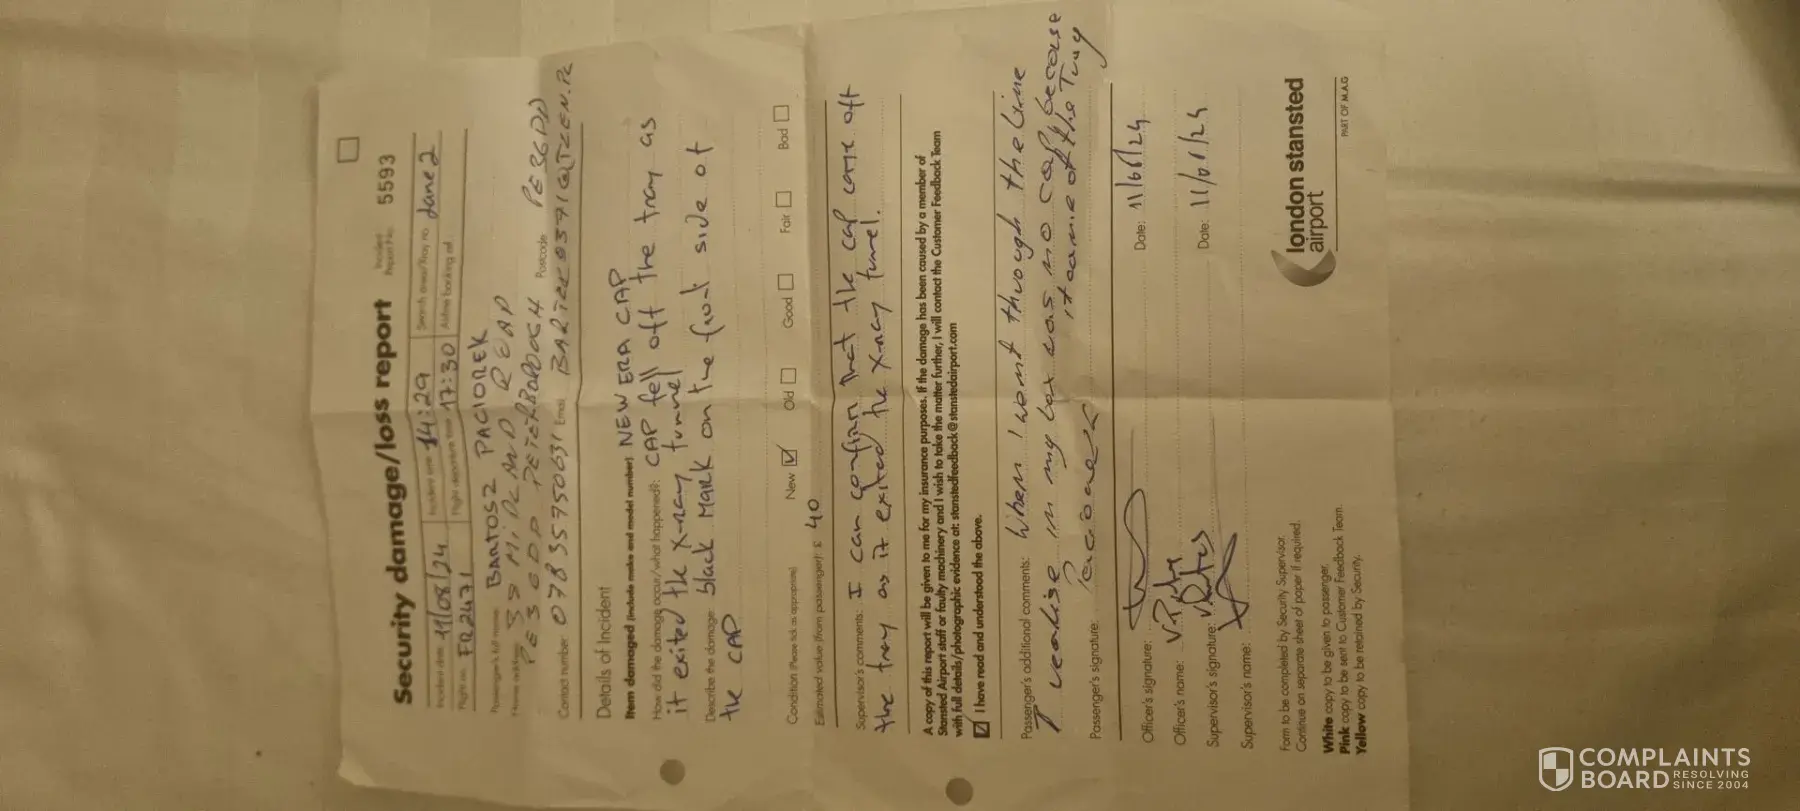 Security damage/loss report
Incident Report No: 5593
Incident date: 11/08/24 Incident time: 14:29 Search area/Tray no. Lane 2
Flight no: FR2471 Flight departure time: 17:30 Airline booking ref:
Passenger's full name: BARTOSZ PACIOREK
Home address: 39 MiDLAND ROAD
PE3 6DD PETERBOROUGH Postcode PE36DD
Contact number: 07835750631 Email:
Details of Incident
Item damaged (include make and model number) NEW ERA CAP
How did the damage occur/what happened?: CAP fell off the tray as
it exited the x-ray tunnel
Describe the damage: black MARK on the front side of
the CAP
Condition (Please tick as appropriate) New ☑ Old ☐ Good ☐ Fair ☐ Bad ☐
Estimated value (from passenger): £ 40
Supervisor's comments: I can confirm that the cap came off
the tray as it exited the x-ray tunnel.
A copy of this report will be given to me for my insurance purposes. If the damage has been caused by a member of
Stansted Airport staff or faulty machinery and I wish to take the matter further, I will contact the Customer Feedback Team
with full details/photographic evidence at: stanstedfeedback@stanstedairport.com
☑ I have read and understood the above.
Passenger's additional comments: When I went through the line
I realise in my box was no cap because
it came of the Tray
Passenger's signature:
Officer's signature: Date: 11/08/24
Officer's name:
Supervisor's signature: Date: 11/08/24
Supervisor's name:
Form to be completed by Security Supervisor.
Continue on separate sheet of paper if required.
White copy to be given to passenger.
Pink copy to be sent to Customer Feedback Team.
Yellow copy to be retained by Security.
london stansted
airport
PART OF M.A.G
COMPLAINTS
BOARD RESOLVING
SINCE 2004